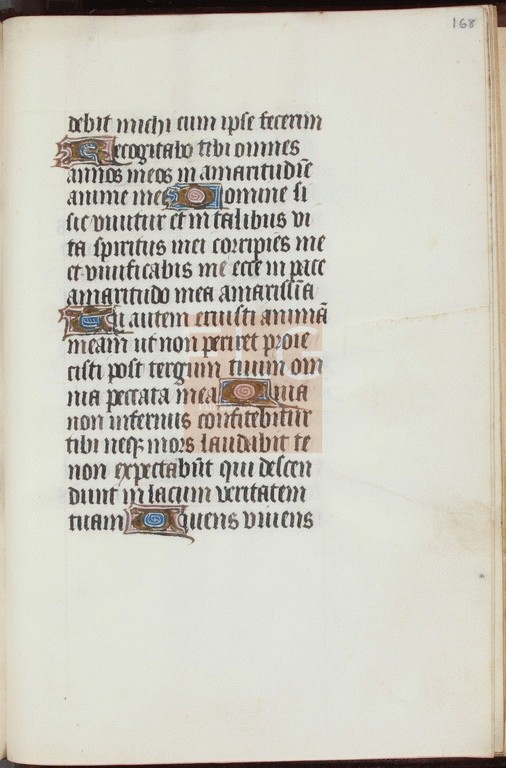 168
debit michi cum ipse fecerim
Recogitabo tibi omnes
annos meos in amaritudīe
anime mee Domine si
sic viuitur et in talibus vi
ta spiritus mei corripies me
et viuificabis me ecce in pace
amaritudo mea amarissīa
Tu autem eruisti animā
meam ut non periret proie
cisti post tergum tuum om
nia peccata mea Quia
non infernus confitebitur
tibi neqȝ mors laudabit te
non expectabūt qui descen
dunt in lacum veritatem
tuam Viuens viuens